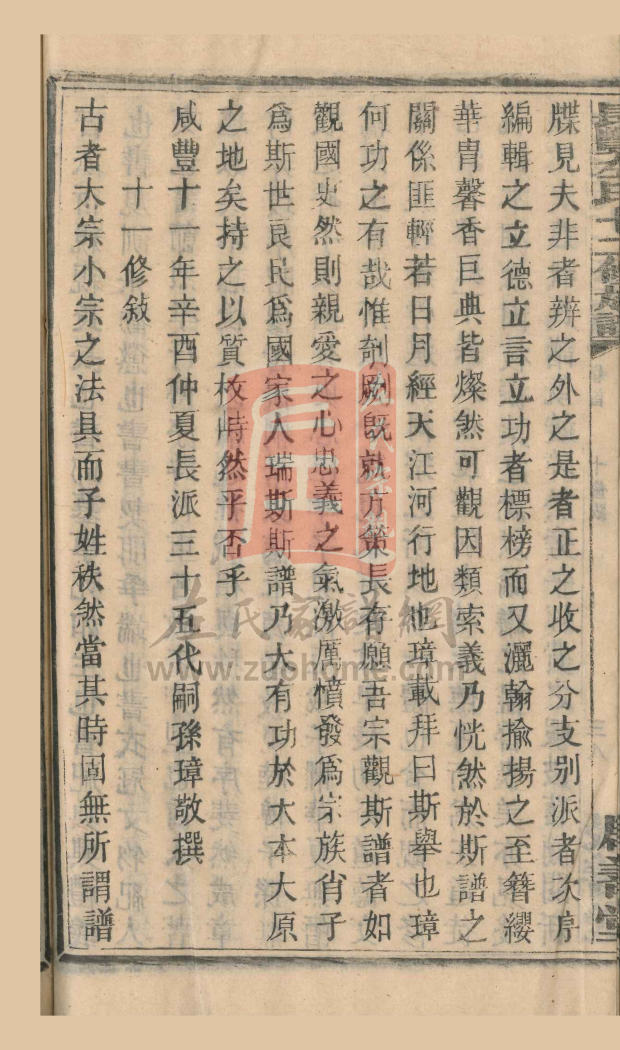 牒見夫非者辨之外之是者正之收之分支別派者次序
編輯之立德立言立功者標榜而又灑翰揄揚之至簪纓
華胄馨香巨典皆燦然可觀因類索義乃恍然於斯譜之
關係匪輕若日月經天江河行地也璋載拜曰斯舉也璋
何功之有哉惟剞劂既就方策長存願吾宗觀斯譜者如
觀國史然則親愛之心忠義之氣激厲憤發爲宗族肖子
爲斯世良民爲國家人瑞斯斯譜乃大有功於大本大原
之地矣持之以質枚峙然乎否乎
咸豐十一年辛酉仲夏長派三十五代嗣孫璋敬撰
十一修敘
古者大宗小宗之法具而子姓秩然當其時固無所謂譜
左氏家譜網
www.zuohome.com